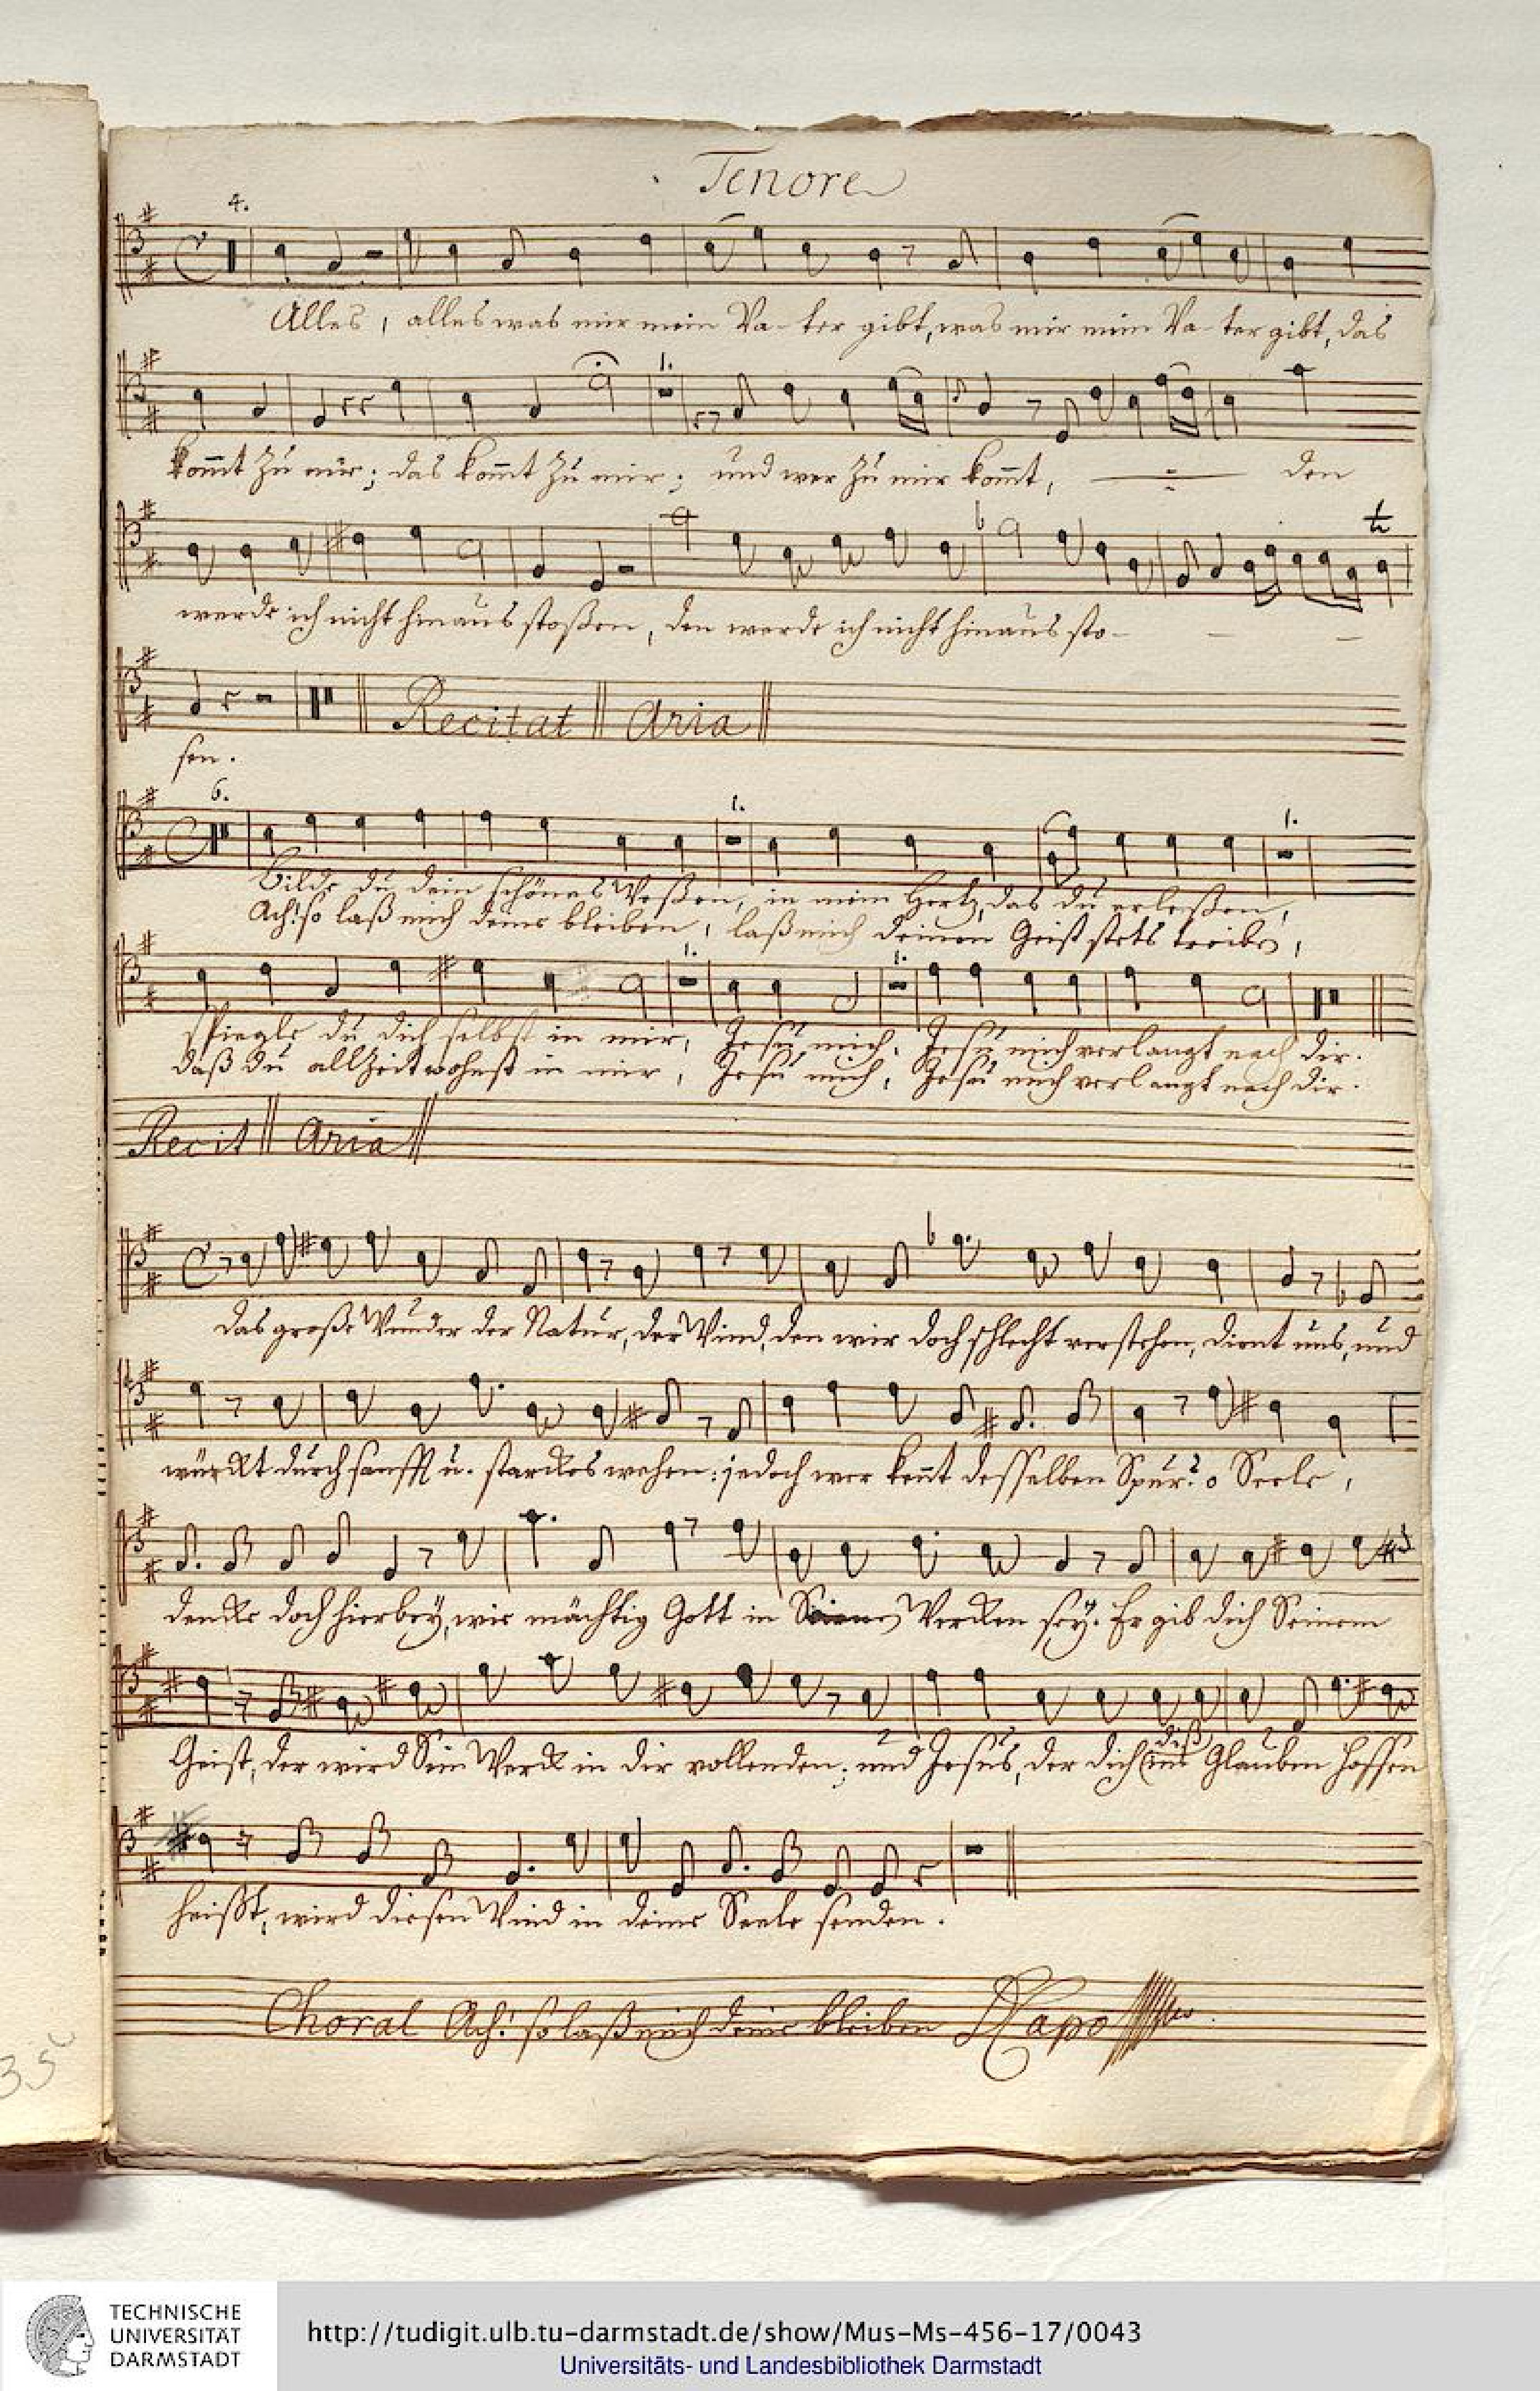 Tenore
4.
Alles, alles was mir mein Va- ter gibt, was mir mein Va- ter gibt, das
1.
kom̄t zu mir; das kom̄t zu mir; und wer zu mir kom̄t, den
werde ich nicht hinaus stoßen, den werde ich nicht hinaus sto-
Recitat Aria
sen.
6. 1. 1.
Bilde du dein schönes Weßen, in mein Hertz, das du erleßen,
Ach! so laß mich deine bleiben, laß mich deinen Geist stets treiben,
1. 1.
Spiegle du dich selbst in mir, Jesu mich, Jesu mich verlangt nach dir.
daß du allzeit wohnest in mir, Jesu mich, Jesu mich verlangt nach dir.
Recit Aria
Das große Wunder der Natur, der Wind, den wir doch schlecht verstehen, dient uns, und
würckt durch sanfft u. starckes wehen: jedoch wer ken̄t desselben Spur? o Seele,
dencke doch hierbey, wie mächtig Gott in Wercken sey. Er gib dich Seinem
Geist, der wird Sein Werck in dir vollenden; und Jesus, der dich diß ins Glauben hoffen
heisst, wird diesen Wind in deine Seele senden.
Choral Ach! so laß mich deine bleiben D Capo
35
TECHNISCHE
UNIVERSITÄT
DARMSTADT
http://tudigit.ulb.tu-darmstadt.de/show/Mus-Ms-456-17/0043
Universitäts- und Landesbibliothek Darmstadt